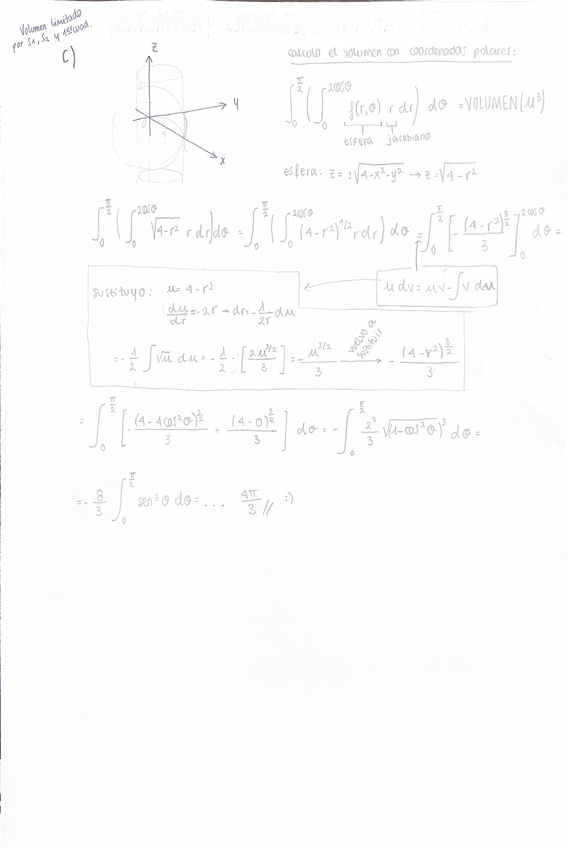 Volumen limitado
por S1, S2 y 1er cuad.
C)
z
y
x
calculo el volumen con coordenadas polares:
∫_0^{π/2} ( ∫_0^{2cosθ} f(r,θ) r dr ) dθ = VOLUMEN (u³)
esfera jacobiano
esfera: z = ±√(4-x²-y²) → z = √(4-r²)
∫_0^{π/2} ( ∫_0^{2cosθ} √(4-r²) r dr ) dθ = ∫_0^{π/2} ( ∫_0^{2cosθ} (4-r²)^{1/2} r dr ) dθ = ∫_0^{π/2} [ -(4-r²)^{3/2}/3 ]_0^{2cosθ} dθ =
sustituyo: u = 4-r²
u dv = uv - ∫v du
du/dr = -2r → dr = -1/2r du
= -1/2 ∫√u du = -1/2 · [ 2u^{3/2}/3 ] = -u^{3/2}/3 vuelvo a sustituir → -(4-r²)^{3/2}/3
= ∫_0^{π/2} [ -(4-4cos²θ)^{3/2}/3 + (4-0)^{3/2}/3 ] dθ = -∫_0^{π/2} 2³/3 √(1-cos²θ)³ dθ =
= -8/3 ∫_0^{π/2} sen³θ dθ = ... 4π/3 // :)